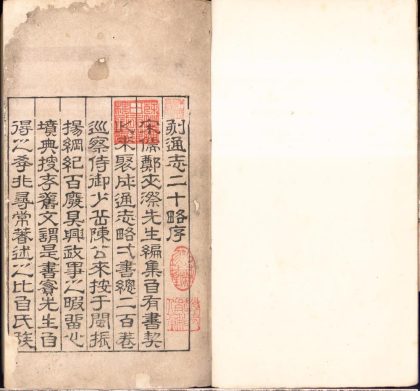 刻通志二十略序
宋儒鄭夾漈先生編集自有書契
以來聚成通志略書總二百卷
巡察侍御少岳陳公來按于閩振
揚綱紀百廢具興政事之暇留心
墳典舊文謂是書實先生自
得之非尋常著述之比自氏族